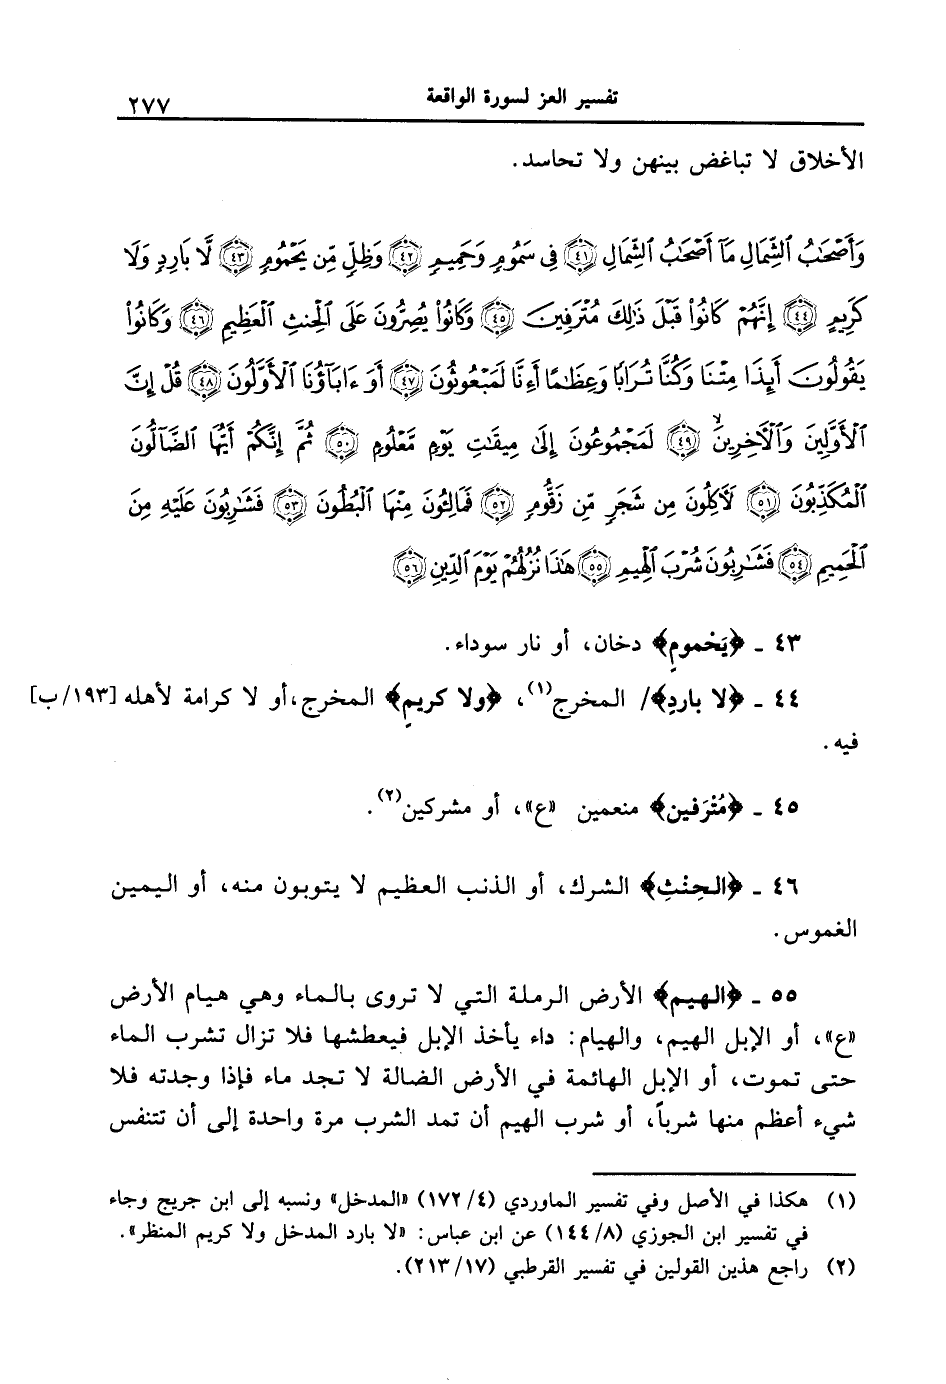 تفسير العز لسورة الواقعة ٢٧٧
الأخلاق لا تباغض بينهن ولا تحاسد.
وَأَصْحَٰبُ ٱلشِّمَالِ مَآ أَصْحَٰبُ ٱلشِّمَالِ ٤١ فِى سَمُومٍ وَحَمِيمٍ ٤٢ وَظِلٍّ مِّن يَحْمُومٍ ٤٣ لَّا بَارِدٍ وَلَا
كَرِيمٍ ٤٤ إِنَّهُمْ كَانُوا۟ قَبْلَ ذَٰلِكَ مُتْرَفِينَ ٤٥ وَكَانُوا۟ يُصِرُّونَ عَلَى ٱلْحِنثِ ٱلْعَظِيمِ ٤٦ وَكَانُوا۟
يَقُولُونَ أَئِذَا مِتْنَا وَكُنَّا تُرَابًا وَعِظَٰمًا أَءِنَّا لَمَبْعُوثُونَ ٤٧ أَوَ ءَابَآؤُنَا ٱلْأَوَّلُونَ ٤٨ قُلْ إِنَّ
ٱلْأَوَّلِينَ وَٱلْءَاخِرِينَ ٤٩ لَمَجْمُوعُونَ إِلَىٰ مِيقَٰتِ يَوْمٍ مَّعْلُومٍ ٥٠ ثُمَّ إِنَّكُمْ أَيُّهَا ٱلضَّآلُّونَ
ٱلْمُكَذِّبُونَ ٥١ لَءَاكِلُونَ مِن شَجَرٍ مِّن زَقُّومٍ ٥٢ فَمَالِـُٔونَ مِنْهَا ٱلْبُطُونَ ٥٣ فَشَٰرِبُونَ عَلَيْهِ مِنَ
ٱلْحَمِيمِ ٥٤ فَشَٰرِبُونَ شُرْبَ ٱلْهِيمِ ٥٥ هَٰذَا نُزُلُهُمْ يَوْمَ ٱلدِّينِ ٥٦
٤٣ ـ ﴿يَحْمومٍ﴾ دخان، أو نار سوداء.
٤٤ ـ ﴿لا باردٍ﴾/ المخرج(١)، ﴿ولا كريمٍ﴾ المخرج، أو لا كرامة لأهله [١٩٣/ب]
فيه.
٤٥ ـ ﴿مُتْرَفين﴾ منعمين «ع»، أو مشركين(٢).
٤٦ ـ ﴿الحِنْثِ﴾ الشرك، أو الذنب العظيم لا يتوبون منه، أو اليمين
الغموس.
٥٥ ـ ﴿الهيم﴾ الأرض الرملة التي لا تروى بالماء وهي هيام الأرض
«ع»، أو الإبل الهيم، والهيام: داء يأخذ الإبل فيعطشها فلا تزال تشرب الماء
حتى تموت، أو الإبل الهائمة في الأرض الضالة لا تجد ماء فإذا وجدته فلا
شيء أعظم منها شرباً، أو شرب الهيم أن تمد الشرب مرة واحدة إلى أن تتنفس
(١) هكذا في الأصل وفي تفسير الماوردي (٤/ ١٧٢) «المدخل» ونسبه إلى ابن جريج وجاء
في تفسير ابن الجوزي (٨/ ١٤٤) عن ابن عباس: «لا بارد المدخل ولا كريم المنظر».
(٢) راجع هذين القولين في تفسير القرطبي (١٧/ ٢١٣).